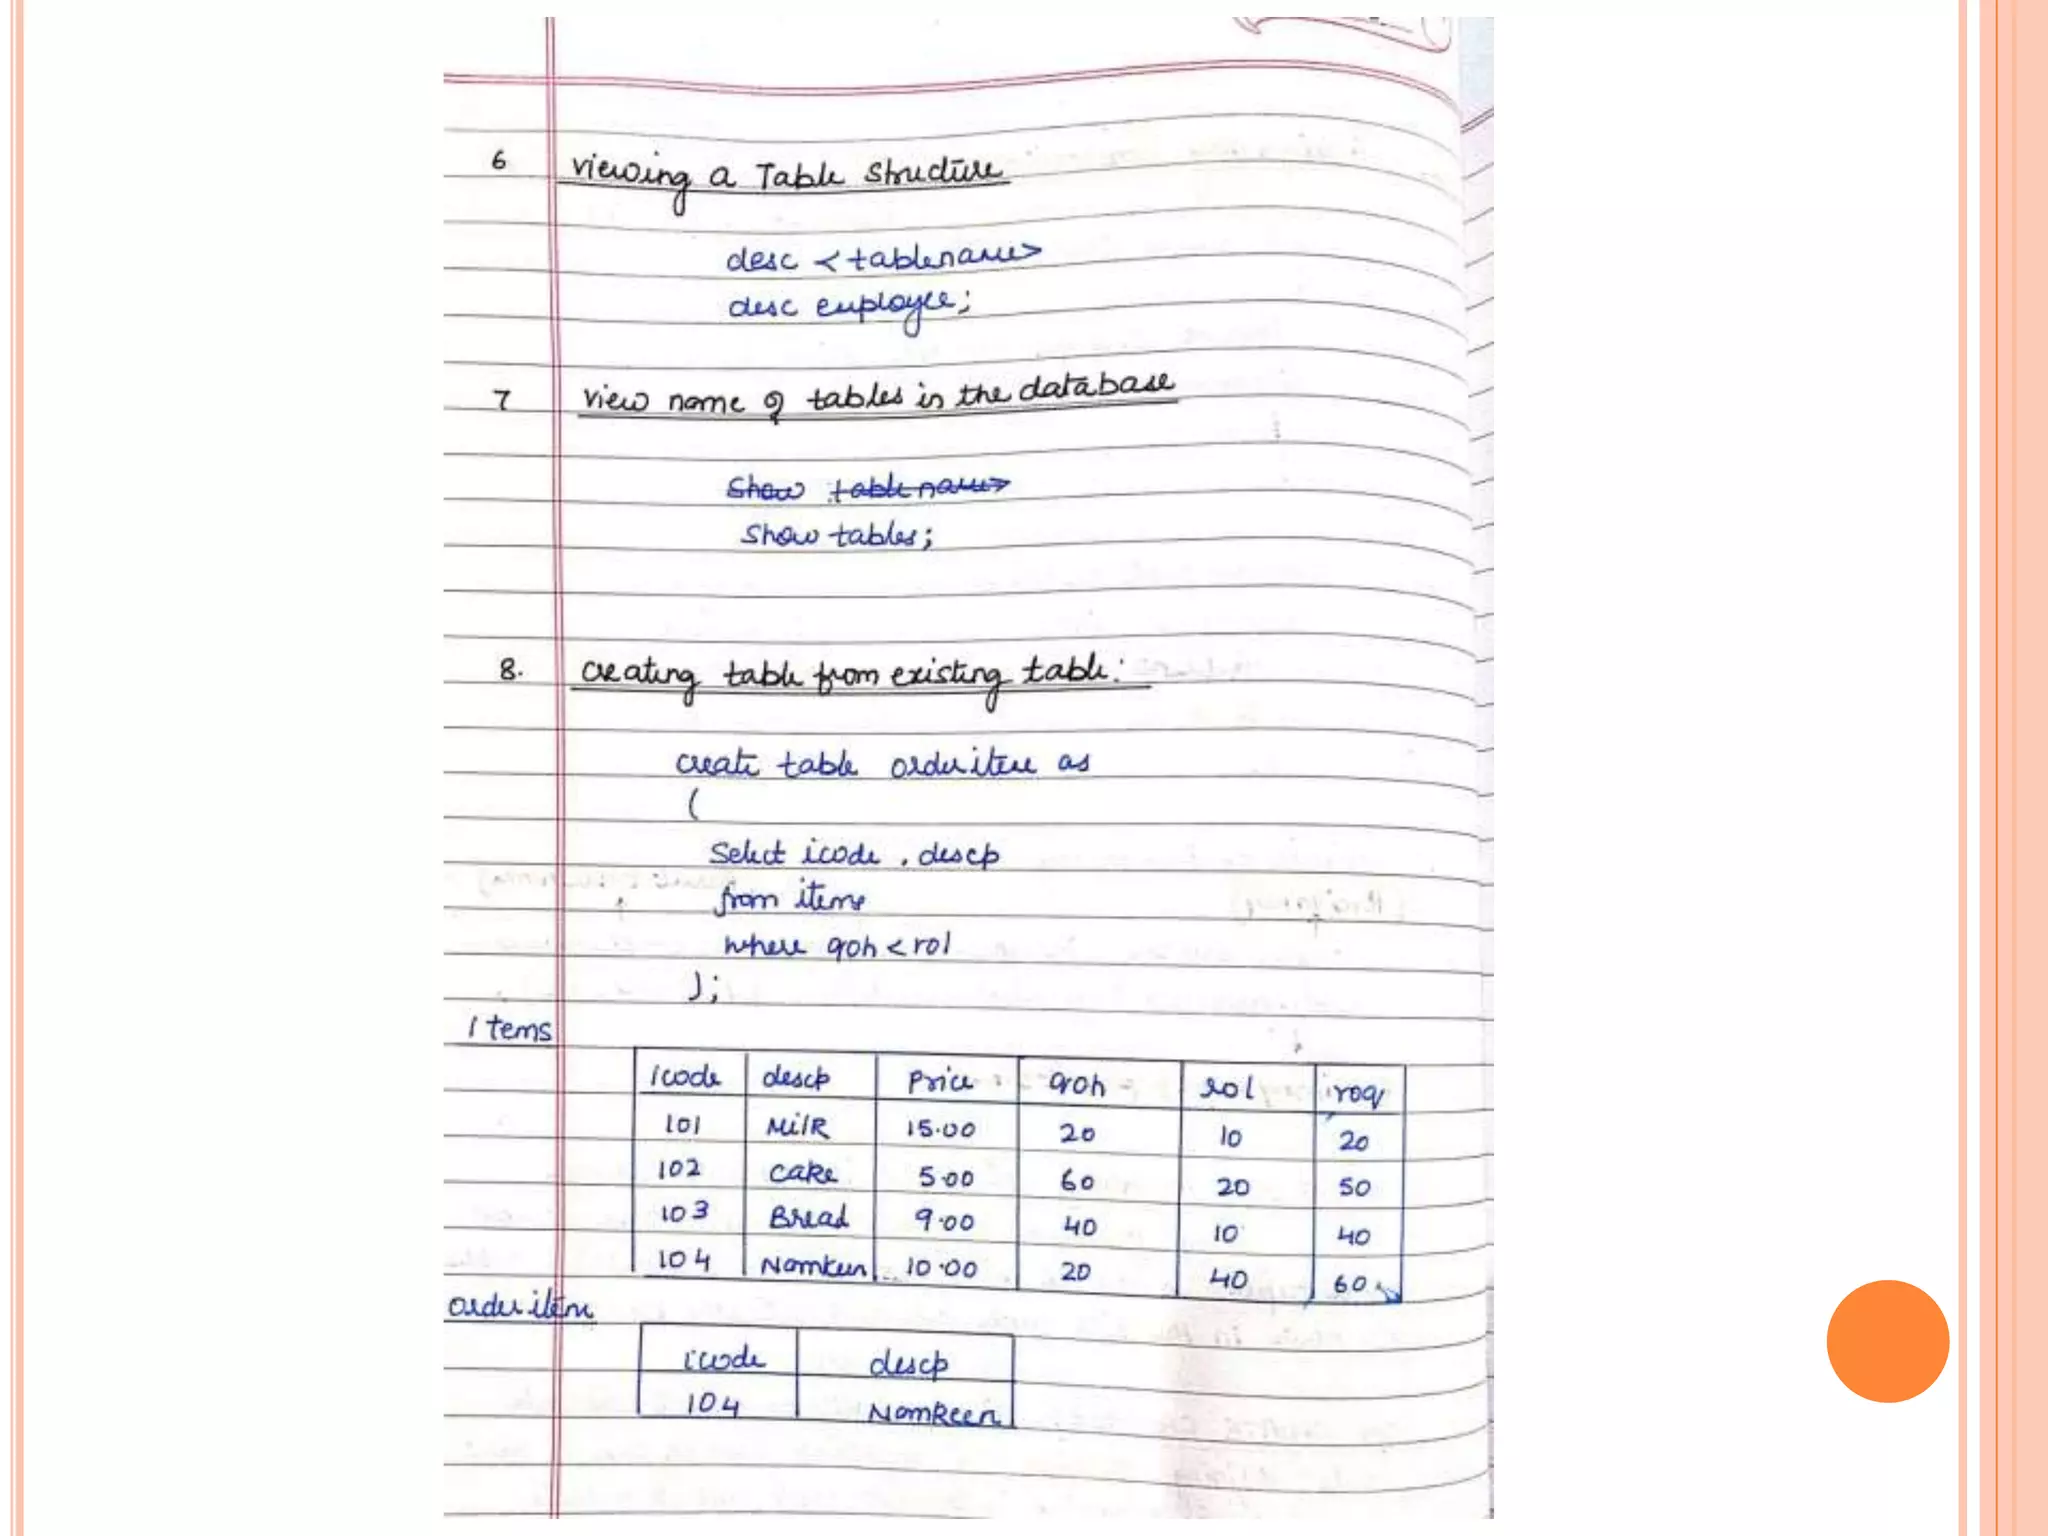 6 Viewing a Table Structure
desc <tablename>
desc employee;
7 View name of tables in the database
Show tablename>
Show tables;
8. Creating table from existing table:
create table orderitem as
(
Select icode, descp
from items
where qoh < rol
);
Items
icode descp Price qoh rol iroq
101 Milk 15.00 20 10 20
102 Cake 5.00 60 20 50
103 Bread 9.00 40 10 40
104 Namkeen 10.00 20 40 60
orderitem
icode descp
104 Namkeen